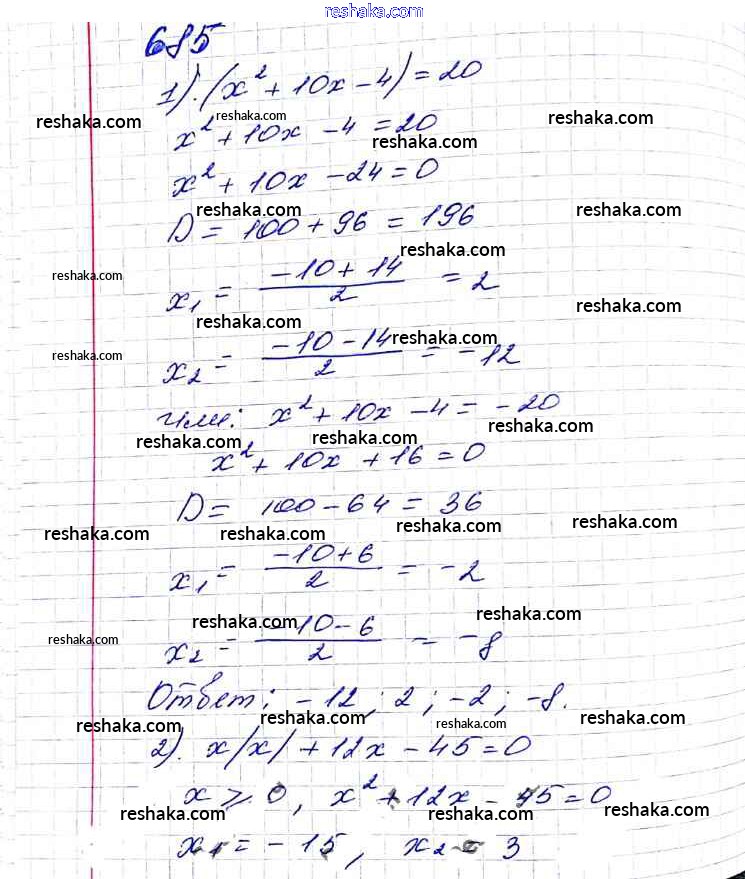 reshaka.com
685
1). (x² + 10x - 4) = 20
reshaka.com reshaka.com reshaka.com
x² + 10x - 4 = 20
reshaka.com
x² + 10x - 24 = 0
reshaka.com reshaka.com
D = 100 + 96 = 196
reshaka.com
reshaka.com
x₁ = (-10 + 14)/2 = 2
reshaka.com
reshaka.com
reshaka.com
x₂ = (-10 - 14)/2 = -12
reshaka.com
или: x² + 10x - 4 = -20
reshaka.com reshaka.com reshaka.com
x² + 10x + 16 = 0
D = 100 - 64 = 36
reshaka.com reshaka.com reshaka.com reshaka.com
x₁ = (-10 + 6)/2 = -2
reshaka.com reshaka.com
reshaka.com
x₂ = (-10 - 6)/2 = -8
Ответ: -12; 2; -2; -8.
reshaka.com reshaka.com reshaka.com reshaka.com
2). x/x/ + 12x - 45 = 0
x ⩾ 0, x² + 12x - 45 = 0
reshaka.com reshaka.com reshaka.com
x₁ = -15, x₂ = 3